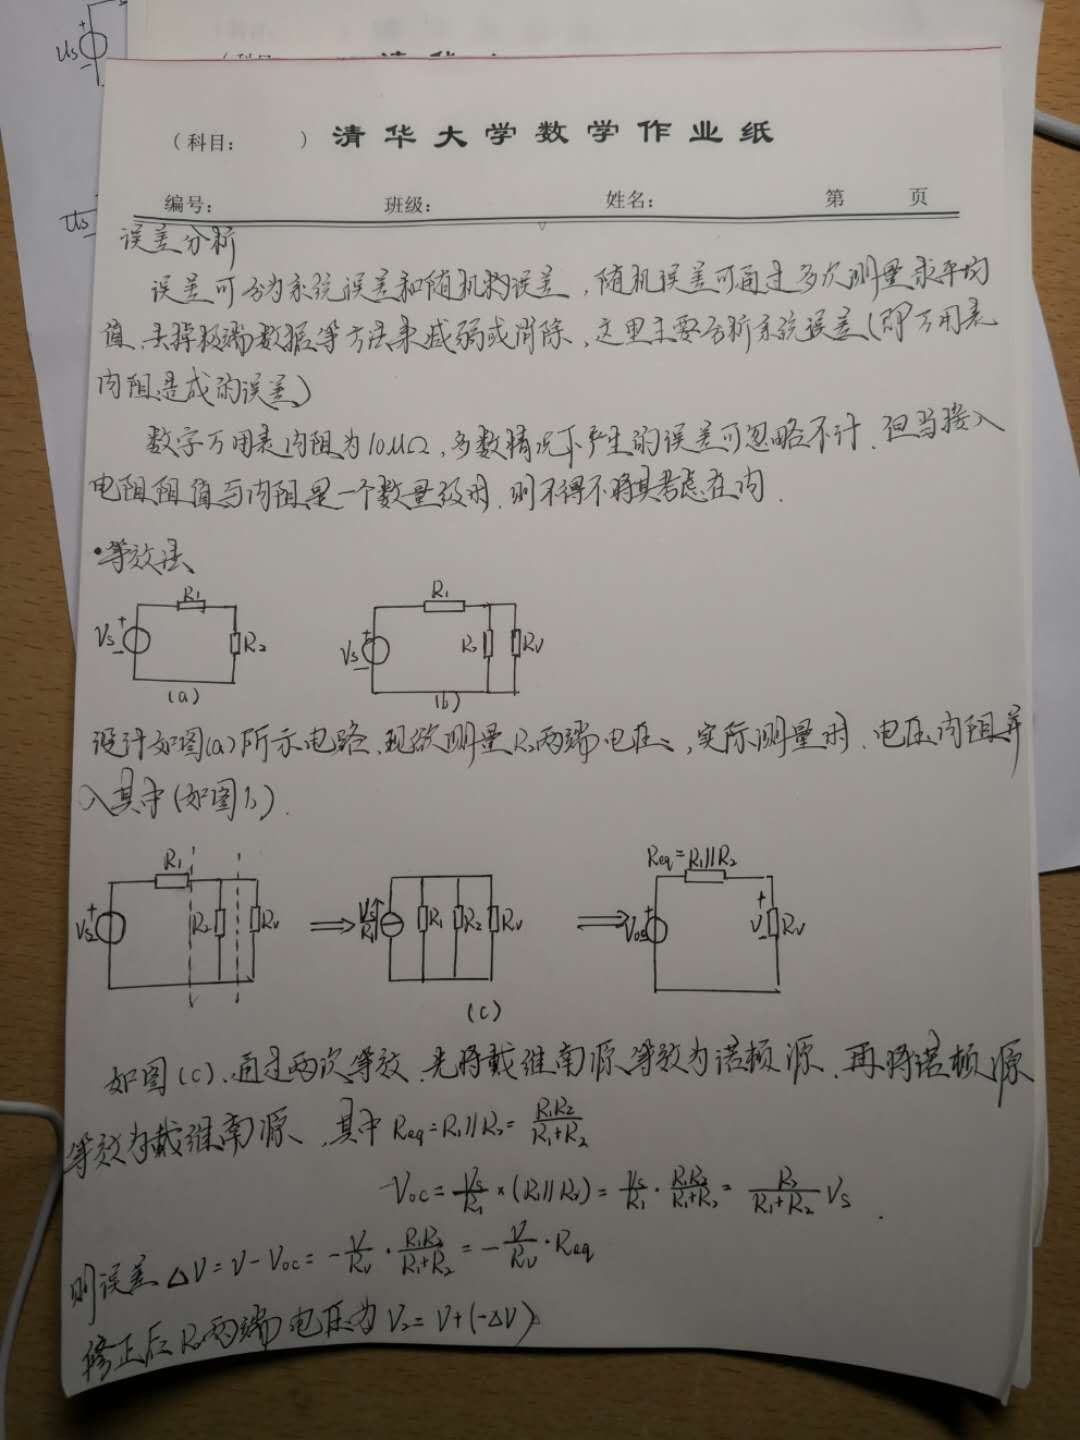 Us
+
-
Us
(科目: ) 清华大学数学作业纸
编号: 班级: 姓名: 第 页
误差分析
误差可分为系统误差和随机构误差,随机误差可通过多次测量求平均
值、去掉极端数据等方法来减弱或消除,这里主要分析系统误差(即万用表
内阻造成的误差)
数字万用表内阻为10MΩ,多数情况下产生的误差可忽略不计.但当接入
电阻阻值与内阻是一个数量级时,则不得不将其考虑在内.
·等效法
R1 R1
Vs + - R2 Vs + - R2 RV
(a) (b)
设计如图(a)所示电路,现欲测量R2两端电压,实际测量时,电压内阻并
入其中(如图b).
R1 Req=R1//R2
Vs + - R2 RV ⇒ Vs/R1 R1 R2 RV ⇒ Voc + - + V - RV
(c)
如图(c),通过两次等效,先将戴维南源等效为诺顿源,再将诺顿源
等效为戴维南源,其中Req=R1//R2=R1R2/(R1+R2)
Voc=Vs/R1×(R1//R2)=Vs/R1·R1R2/(R1+R2)=R2/(R1+R2) Vs.
则误差ΔV=V-Voc=-V/RV·R1R2/(R1+R2)=-V/RV·Req
修正后R2两端电压为V2=V+(-ΔV)